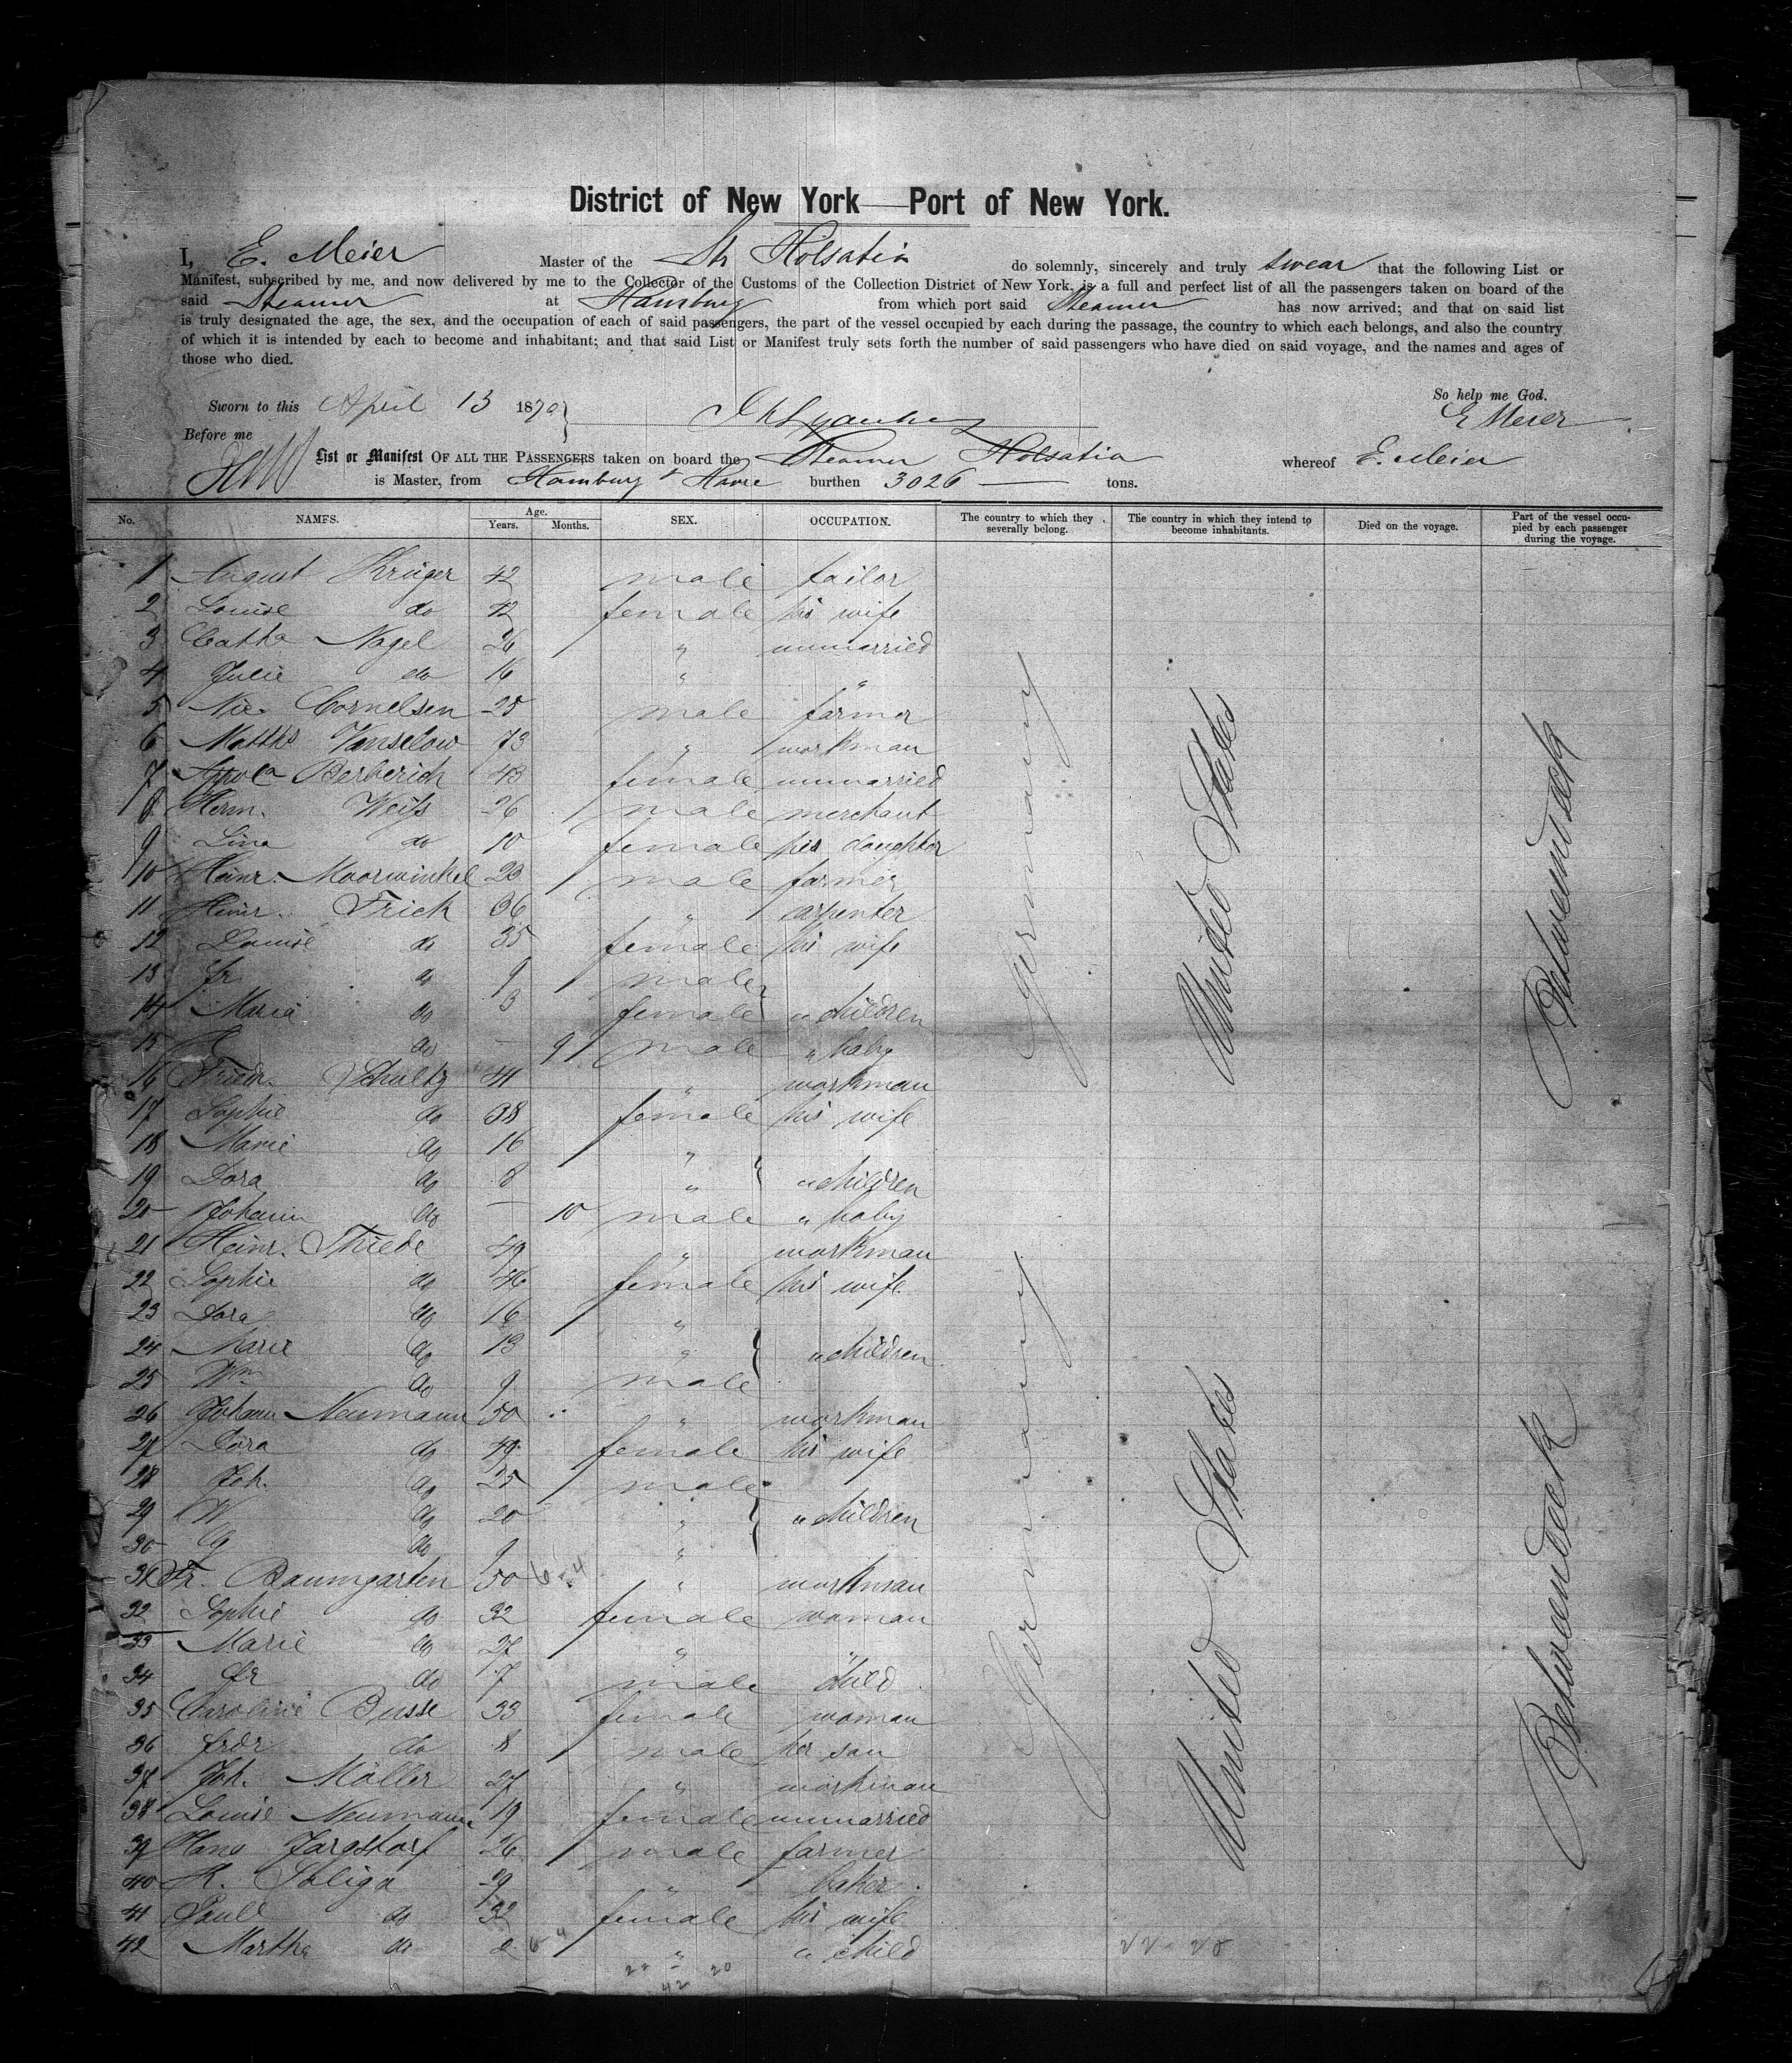 District of New York — Port of New York.
I, E. Meier Master of the Str Holsatia do solemnly, sincerely and truly swear that the following List or
Manifest, subscribed by me, and now delivered by me to the Collector of the Customs of the Collection District of New York, is a full and perfect list of all the passengers taken on board of the
said Steamer at Hamburg from which port said Steamer has now arrived; and that on said list
is truly designated the age, the sex, and the occupation of each of said passengers, the part of the vessel occupied by each during the passage, the country to which each belongs, and also the country
of which it is intended by each to become and inhabitant; and that said List or Manifest truly sets forth the number of said passengers who have died on said voyage, and the names and ages of
those who died.
So help me God.
Sworn to this April 13 1870 E Meier
Before me
List or Manifest OF ALL THE PASSENGERS taken on board the Steamer Holsatia whereof E. Meier
is Master, from Hamburg & Havre burthen 3026 — tons.
No. NAMES. Age. Years. Months. SEX. OCCUPATION. The country to which they severally belong. The country in which they intend to become inhabitants. Died on the voyage. Part of the vessel occupied by each passenger during the voyage.
1 August Krüger 42 male tailor
2 Louise do 42 female his wife
3 Catha Nagel 26 " unmarried
4 Julie do 16 " "
5 Nic. Cornelsen 25 male farmer
6 Matths Vanselow 73 " workman
7 Berberich 43 female unmarried
8 Herm. Weifs 26 male merchant
9 Lina do 10 female his daughter
10 Heinr. Moorwinkel 23 male farmer
11 Heinr. Frick 36 " carpenter
12 Louise do 35 female his wife
13 Fr do 9 male
14 Maria do 3 female " children
15 do — 9 male " baby
16 Friedr. Schultz 41 " workman
17 Sophie do 38 female his wife
18 Marie do 16 "
19 Dora do 8 " " children
20 Johann do — 10 male " baby
21 Heinr. Thiede 49 " workman
22 Sophie do 46 female his wife
23 Dora do 16 "
24 Marie do 13 " " children
25 Wm do 9 male
26 Johann Neumann 50 " workman
27 Dora do 49 female his wife
28 Joh. do 25 male
29 W do 20 " " children
30 do 9 "
31 Fr. Baumgarten 50 " workman
32 Sophie do 32 female woman
33 Marie do 27 " "
34 Fr do 7 male child
35 Caroline Busse 33 female woman
36 Frdr do 8 male her son
37 Joh. Möller 27 " workman
38 Louise Neumann 19 female unmarried
39 Hans Jargstorf 26 male farmer
40 R. Soliga 29 " baker
41 do 32 female his wife
42 Martha do 2 " " child
Germany
United States
Betweendeck
Germany
United States
Betweendeck
22 - 20
42